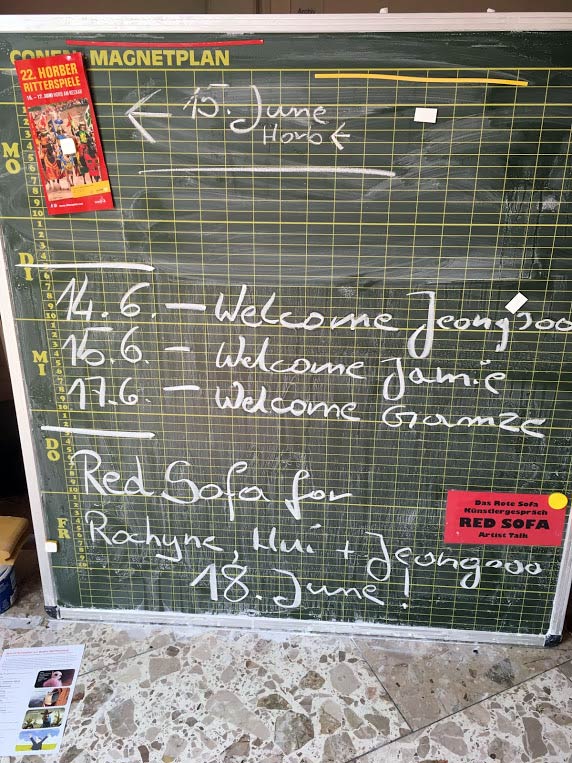 CONEN MAGNETPLAN
22. HORBER
RITTERSPIELE
15. June
Horb
MO
DI
14.6. – Welcome Jeongsoo
MI
15.6. – Welcome Jamie
17.6. – Welcome Gamze
DO
Red Sofa for
FR
Rachyne, Hui + Jeongsoo
18. June!
Das Rote Sofa
Künstlergespräch
RED SOFA
Artist Talk